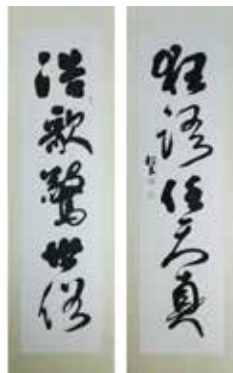 狂语任天真
浩歌惊世俗